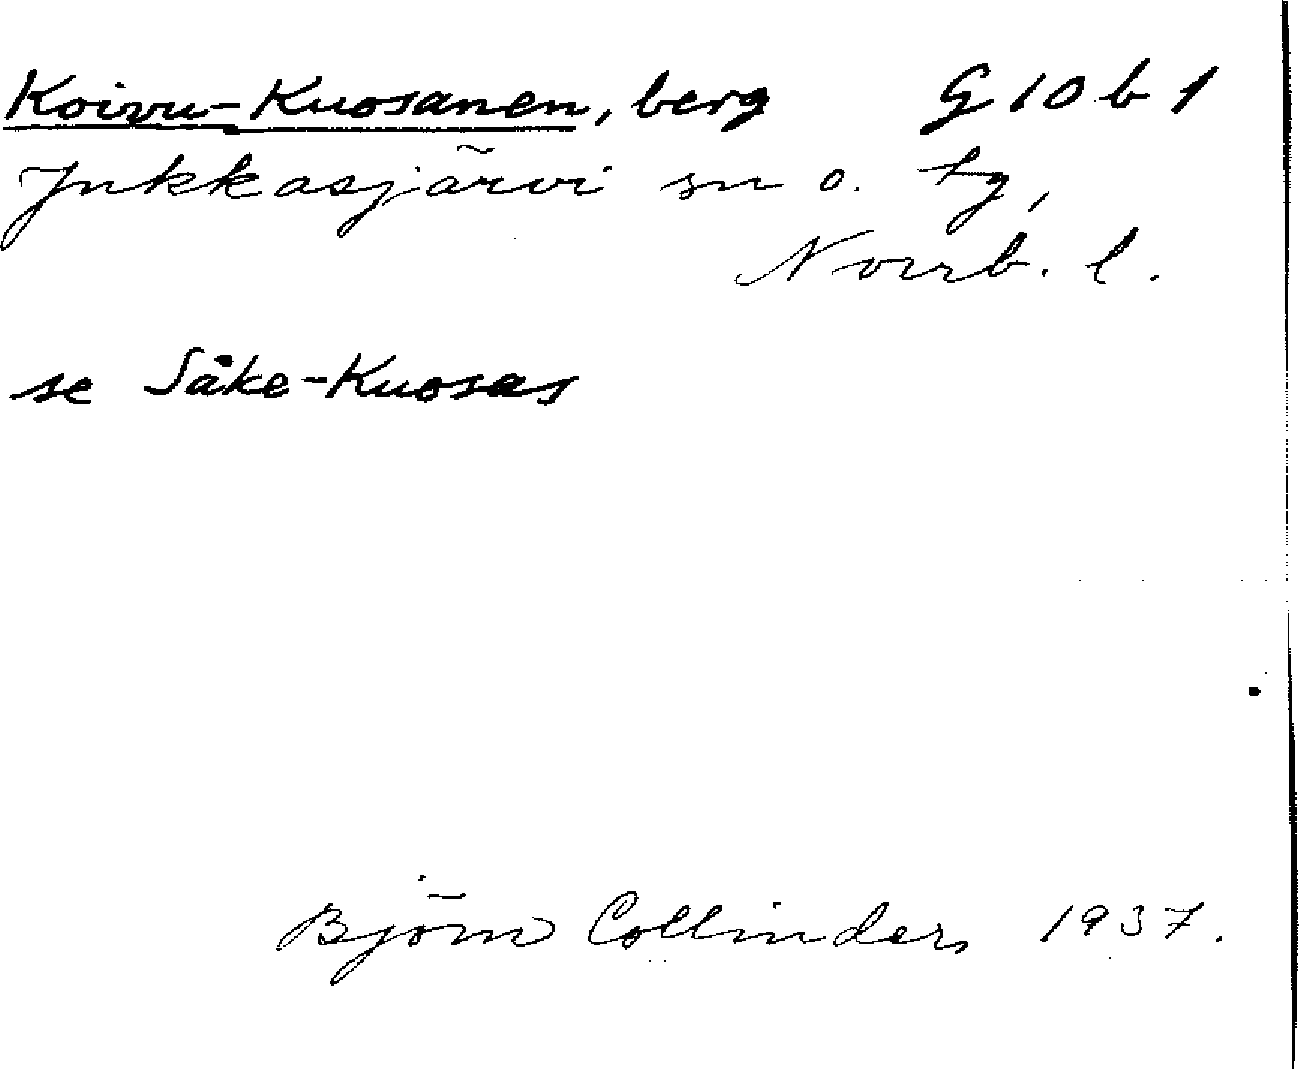 Koivu-Kuosanen, berg G 10 b 1
Jukkasjärvi sn o. tg,
Norrb. l.
se Såke-Kuosas
Björn Collinder, 1937.